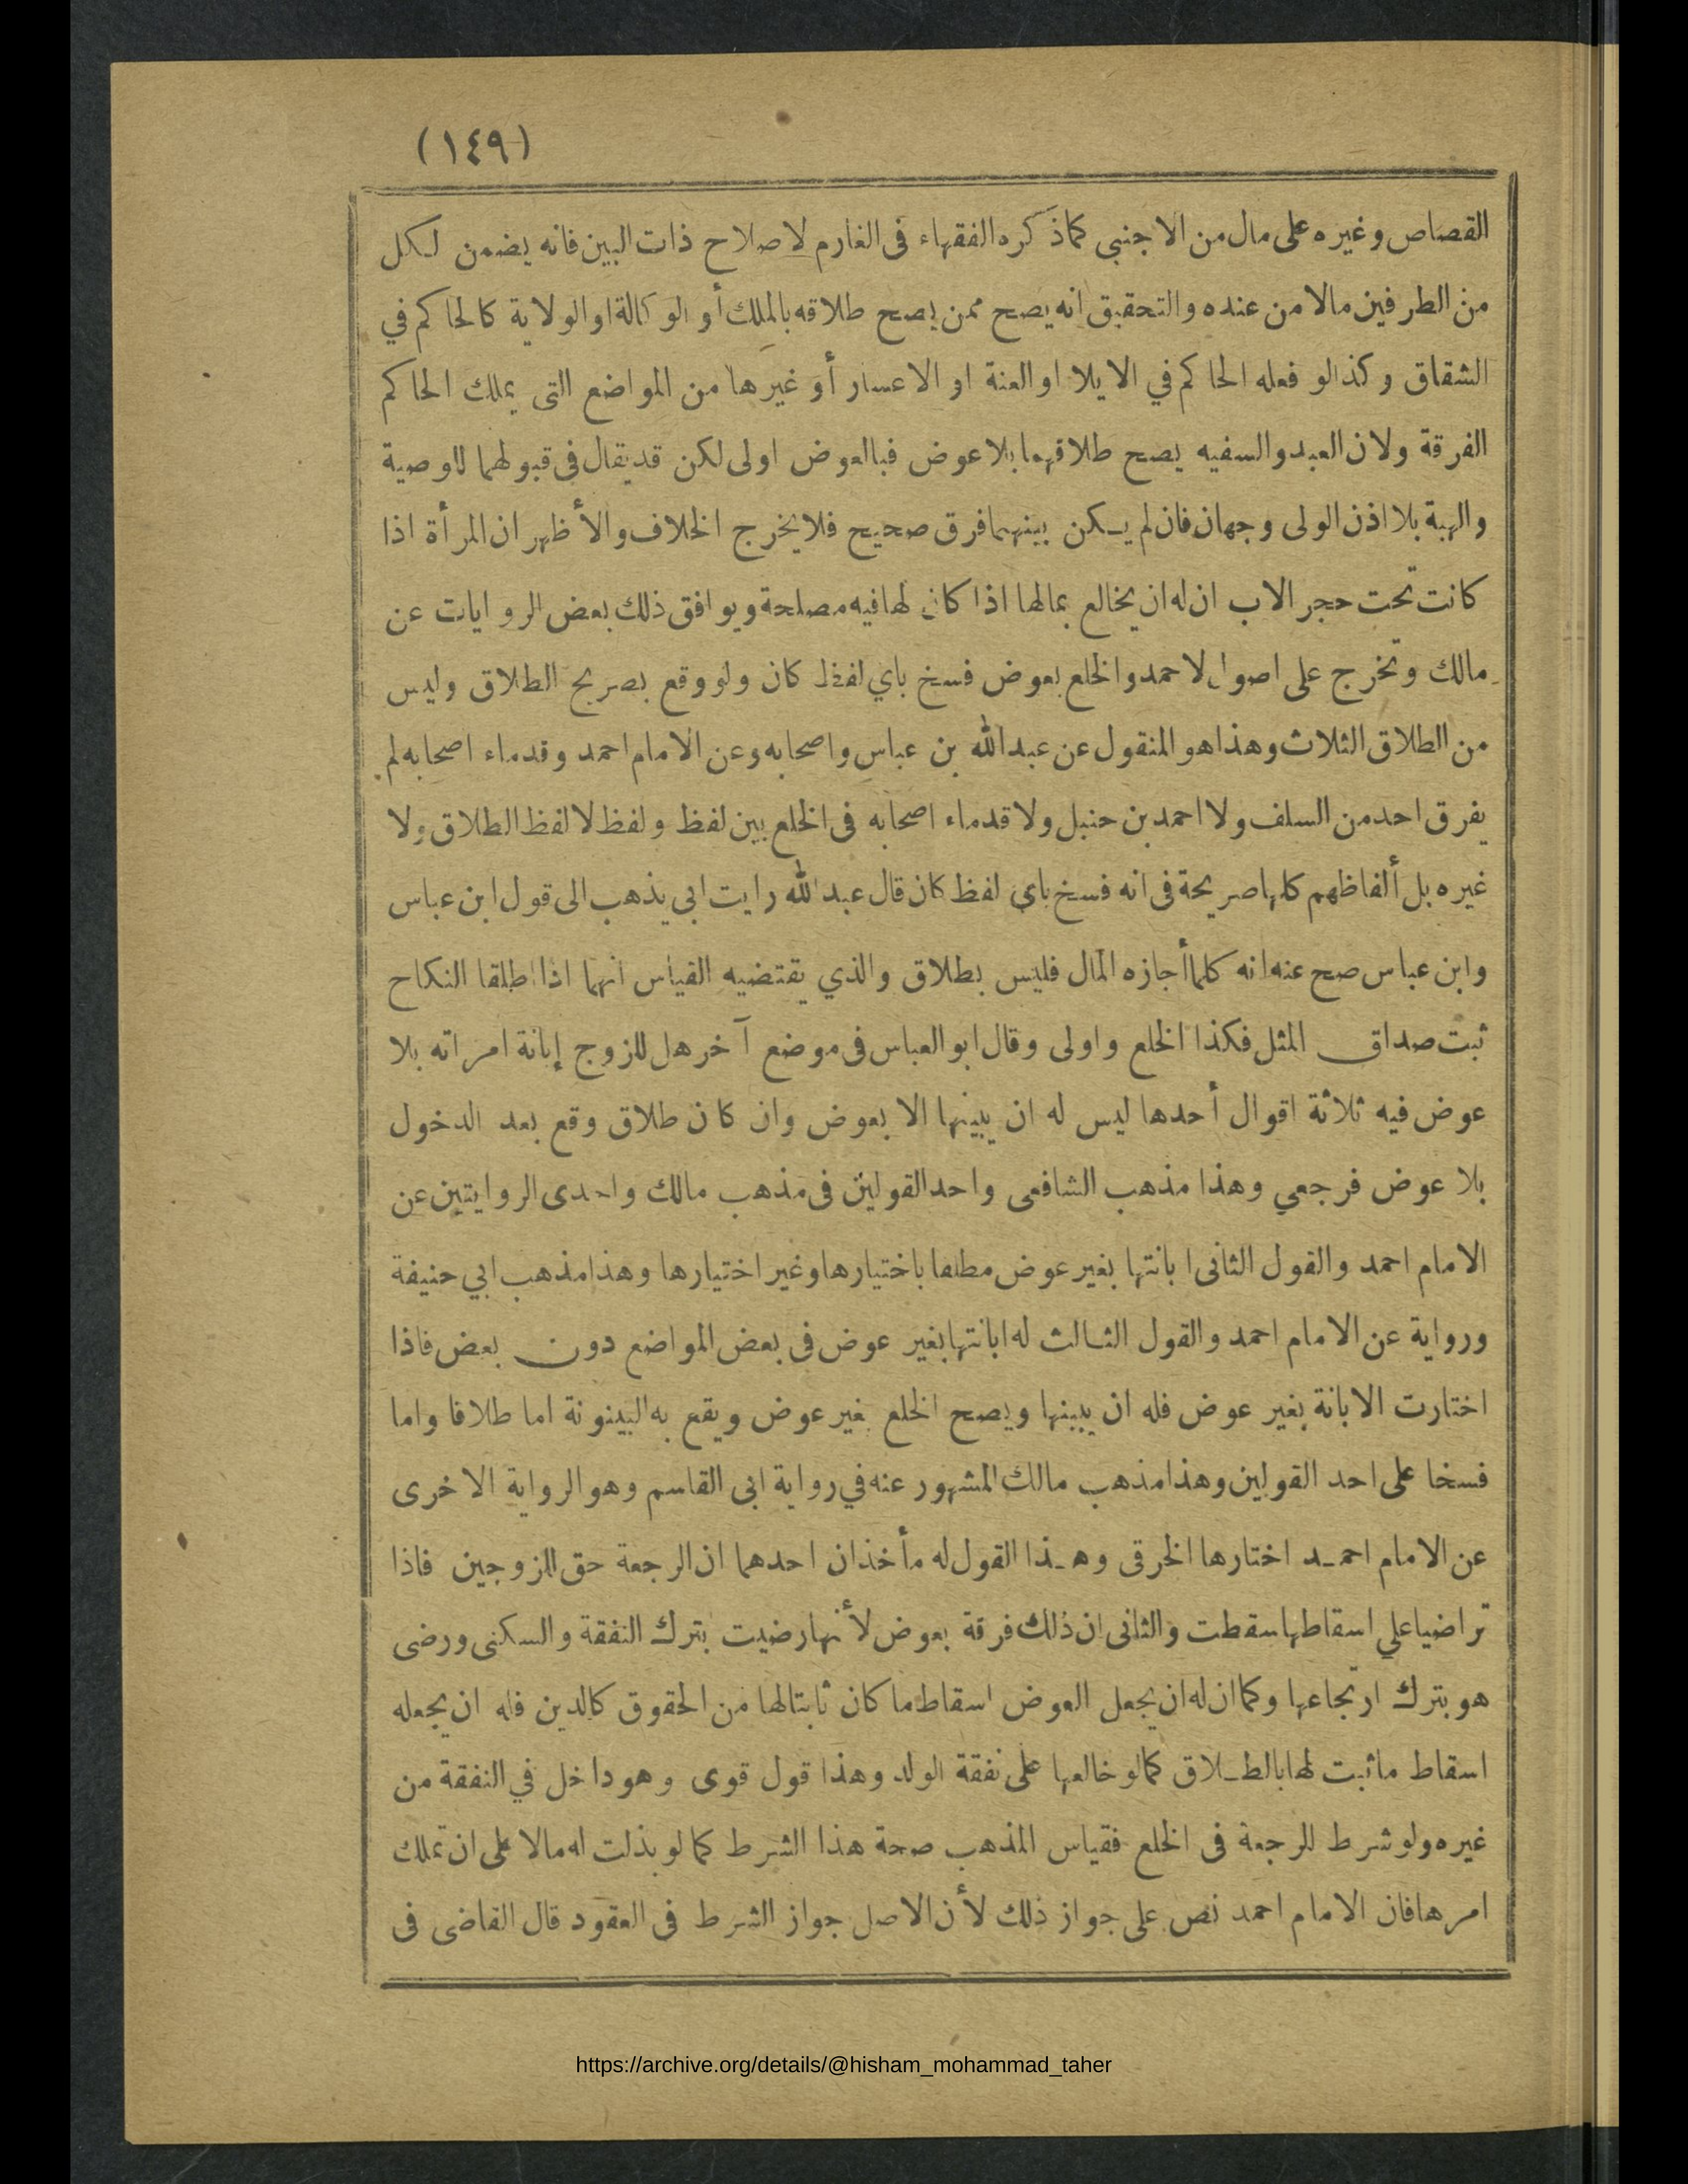 (١٤٩)
القصاص وغيره على مال من الاجنبى كماذكره الفقهاء فى الغارم لاصلاح ذات البين فانه يضمن لكل
من الطرفين مالا من عنده والتحقيق انه يصح ممن يصح طلاقه بالملك أو الوكالة او الولاية كالحاكم في
الشقاق وكذالو فعله الحاكم في الايلا او العنة او الاعسار أو غيرها من المواضع التى يملك الحاكم
الفرقة ولان العبد والسفيه يصح طلاقهما بلا عوض فبالعوض اولى لكن قد يقال فى قبولهما للوصية
والهبة بلا اذن الولى وجهان فان لم يكن بينهما فرق صحيح فلا يخرج الخلاف والأظهر ان المرأة اذا
كانت تحت حجر الاب ان له ان يخالع بمالها اذا كان لها فيه مصلحة ويوافق ذلك بعض الروايات عن
مالك وتخرج على اصول لاحمد والخلع بعوض فسخ باي لفظ كان ولو وقع بصريح الطلاق وليس
من الطلاق الثلاث وهذا هو المنقول عن عبد الله بن عباس واصحابه وعن الامام احمد وقدماء اصحابه لم
يفرق احد من السلف ولا احمد بن حنبل ولا قدماء اصحابه فى الخلع بين لفظ ولفظ لا لفظ الطلاق ولا
غيره بل ألفاظهم كلها صريحة فى انه فسخ باى لفظ كان قال عبد الله رايت ابى يذهب الى قول ابن عباس
وابن عباس صح عنه انه كلما أجازه المال فليس بطلاق والذي يقتضيه القياس انهما اذا طلقا النكاح
ثبت صداق المثل فكذا الخلع واولى وقال ابو العباس فى موضع آخر هل للزوج إبانة امراته بلا
عوض فيه ثلاثة اقوال أحدها ليس له ان يبينها الا بعوض وان كان طلاق وقع بعد الدخول
بلا عوض فرجعي وهذا مذهب الشافعى واحد القولين فى مذهب مالك واحدى الروايتين عن
الامام احمد والقول الثانى ابانتها بغير عوض مطلقا باختيارها وغير اختيارها وهذا مذهب ابي حنيفة
ورواية عن الامام احمد والقول الثالث له ابانتها بغير عوض فى بعض المواضع دون بعض فاذا
اختارت الابانة بغير عوض فله ان يبينها ويصح الخلع بغير عوض ويقع به البينونة اما طلاقا واما
فسخا على احد القولين وهذا مذهب مالك المشهور عنه في رواية ابى القاسم وهو الرواية الاخرى
عن الامام احمد اختارها الخرقى وهذا القول له مأخذان احدهما ان الرجعة حق للزوجين فاذا
تراضيا على اسقاطها سقطت والثانى ان ذلك فرقة بعوض لأنها رضيت بترك النفقة والسكنى ورضى
هو بترك ارتجاعها وكما ان له ان يجعل العوض اسقاط ما كان ثابتا لها من الحقوق كالدين فله ان يجعله
اسقاط ما ثبت لها بالطلاق كما لو خالعها على نفقة الولد وهذا قول قوى وهو داخل في النفقة من
غيره ولو شرط للرجعة فى الخلع فقياس المذهب صحة هذا الشرط كما لو بذلت له مالا على ان تملك
امرها فان الامام احمد نص على جواز ذلك لأن الاصل جواز الشرط فى العقود قال القاضى فى
https://archive.org/details/@hisham_mohammad_taher